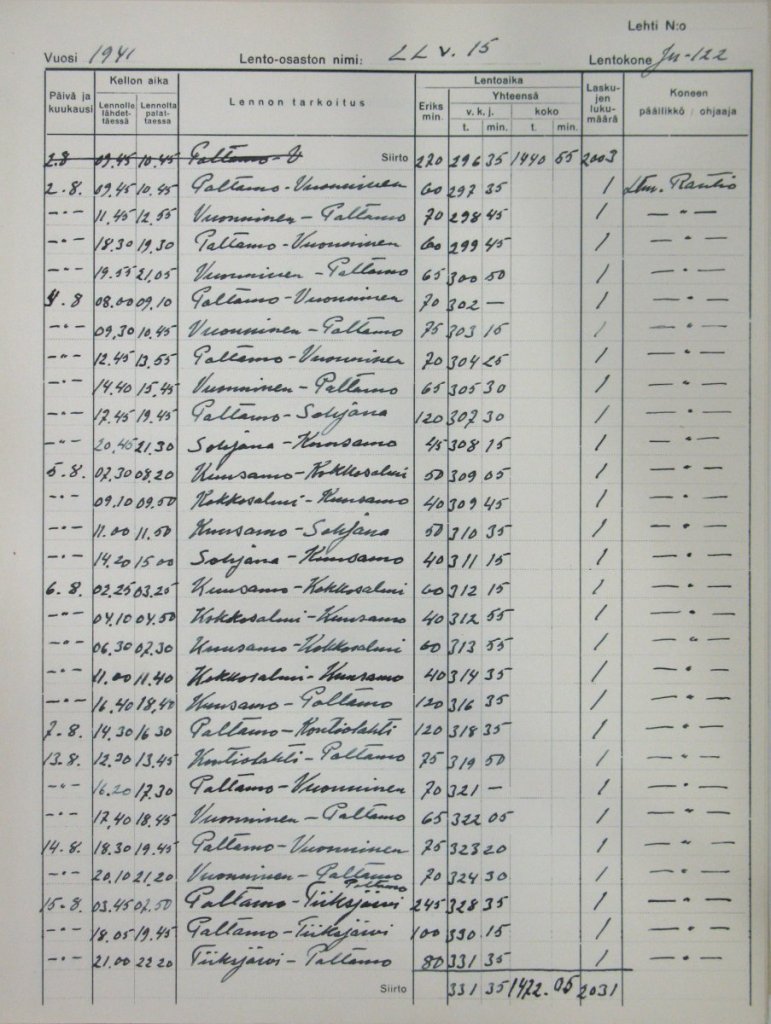 Lehti N:o
Vuosi 1941 Lento-osaston nimi: LLv. 15 Lentokone Ju-122
Päivä ja kuukausi Kellon aika Lennolle lähdettäessä Lennolta palattaessa Lennon tarkoitus Lentoaika Eriks min. Yhteensä v. k. j. t. min. koko t. min. Laskujen lukumäärä Koneen päällikkö / ohjaaja
2.8 09.45 10.45 Paltamo-V Siirto 220 296 35 1440 55 2003
2.8. 09.45 10.45 Paltamo-Vuonninen 60 297 35 1 Ltm. Rautio
-"- 11.45 12.55 Vuonninen-Paltamo 70 298 45 1 -"-
-"- 18.30 19.30 Paltamo-Vuonninen 60 299 45 1 -"-
-"- 19.55 21.05 Vuonninen-Paltamo 65 300 50 1 -"-
4.8 08.00 09.10 Paltamo-Vuonninen 70 302 - 1 -"-
-"- 09.30 10.45 Vuonninen-Paltamo 75 303 15 1 -"-
-"- 12.45 13.55 Paltamo-Vuonninen 70 304 25 1 -"-
-"- 14.40 15.45 Vuonninen-Paltamo 65 305 30 1 -"-
-"- 17.45 19.45 Paltamo-Sohjana 120 307 30 1 -"-
-"- 20.45 21.30 Sohjana-Kuusamo 45 308 15 1 -"-
5.8. 07.30 08.20 Kuusamo-Kokkosalmi 50 309 05 1 -"-
-"- 09.10 09.50 Kokkosalmi-Kuusamo 40 309 45 1 -"-
-"- 11.00 11.50 Kuusamo-Sohjana 50 310 35 1 -"-
-"- 14.20 15.00 Sohjana-Kuusamo 40 311 15 1 -"-
6.8. 02.25 03.25 Kuusamo-Kokkosalmi 60 312 15 1 -"-
-"- 04.10 04.50 Kokkosalmi-Kuusamo 40 312 55 1 -"-
-"- 06.30 07.30 Kuusamo-Kokkosalmi 60 313 55 1 -"-
-"- 11.00 11.40 Kokkosalmi-Kuusamo 40 314 35 1 -"-
-"- 16.40 18.40 Kuusamo-Paltamo 120 316 35 1 -"-
7.8. 14.30 16.30 Paltamo-Kontiolahti 120 318 35 1 -"-
13.8. 12.30 13.45 Kontiolahti-Paltamo 75 319 50 1 -"-
-"- 16.20 17.30 Paltamo-Vuonninen 70 321 - 1 -"-
-"- 17.40 18.45 Vuonninen-Paltamo 65 322 05 1 -"-
14.8. 18.30 19.45 Paltamo-Vuonninen 75 323 20 1 -"-
-"- 20.10 21.20 Vuonninen-Paltamo 70 324 30 1 -"-
15.8. 03.45 07.50 Paltamo-Tiiksjärvi Paltamo 245 328 35 1 -"-
-"- 18.05 19.45 Paltamo-Tiiksjärvi 100 330 15 1 -"-
-"- 21.00 22.20 Tiiksjärvi-Paltamo 80 331 35 1 -"-
Siirto 331 35 1472.05 2031